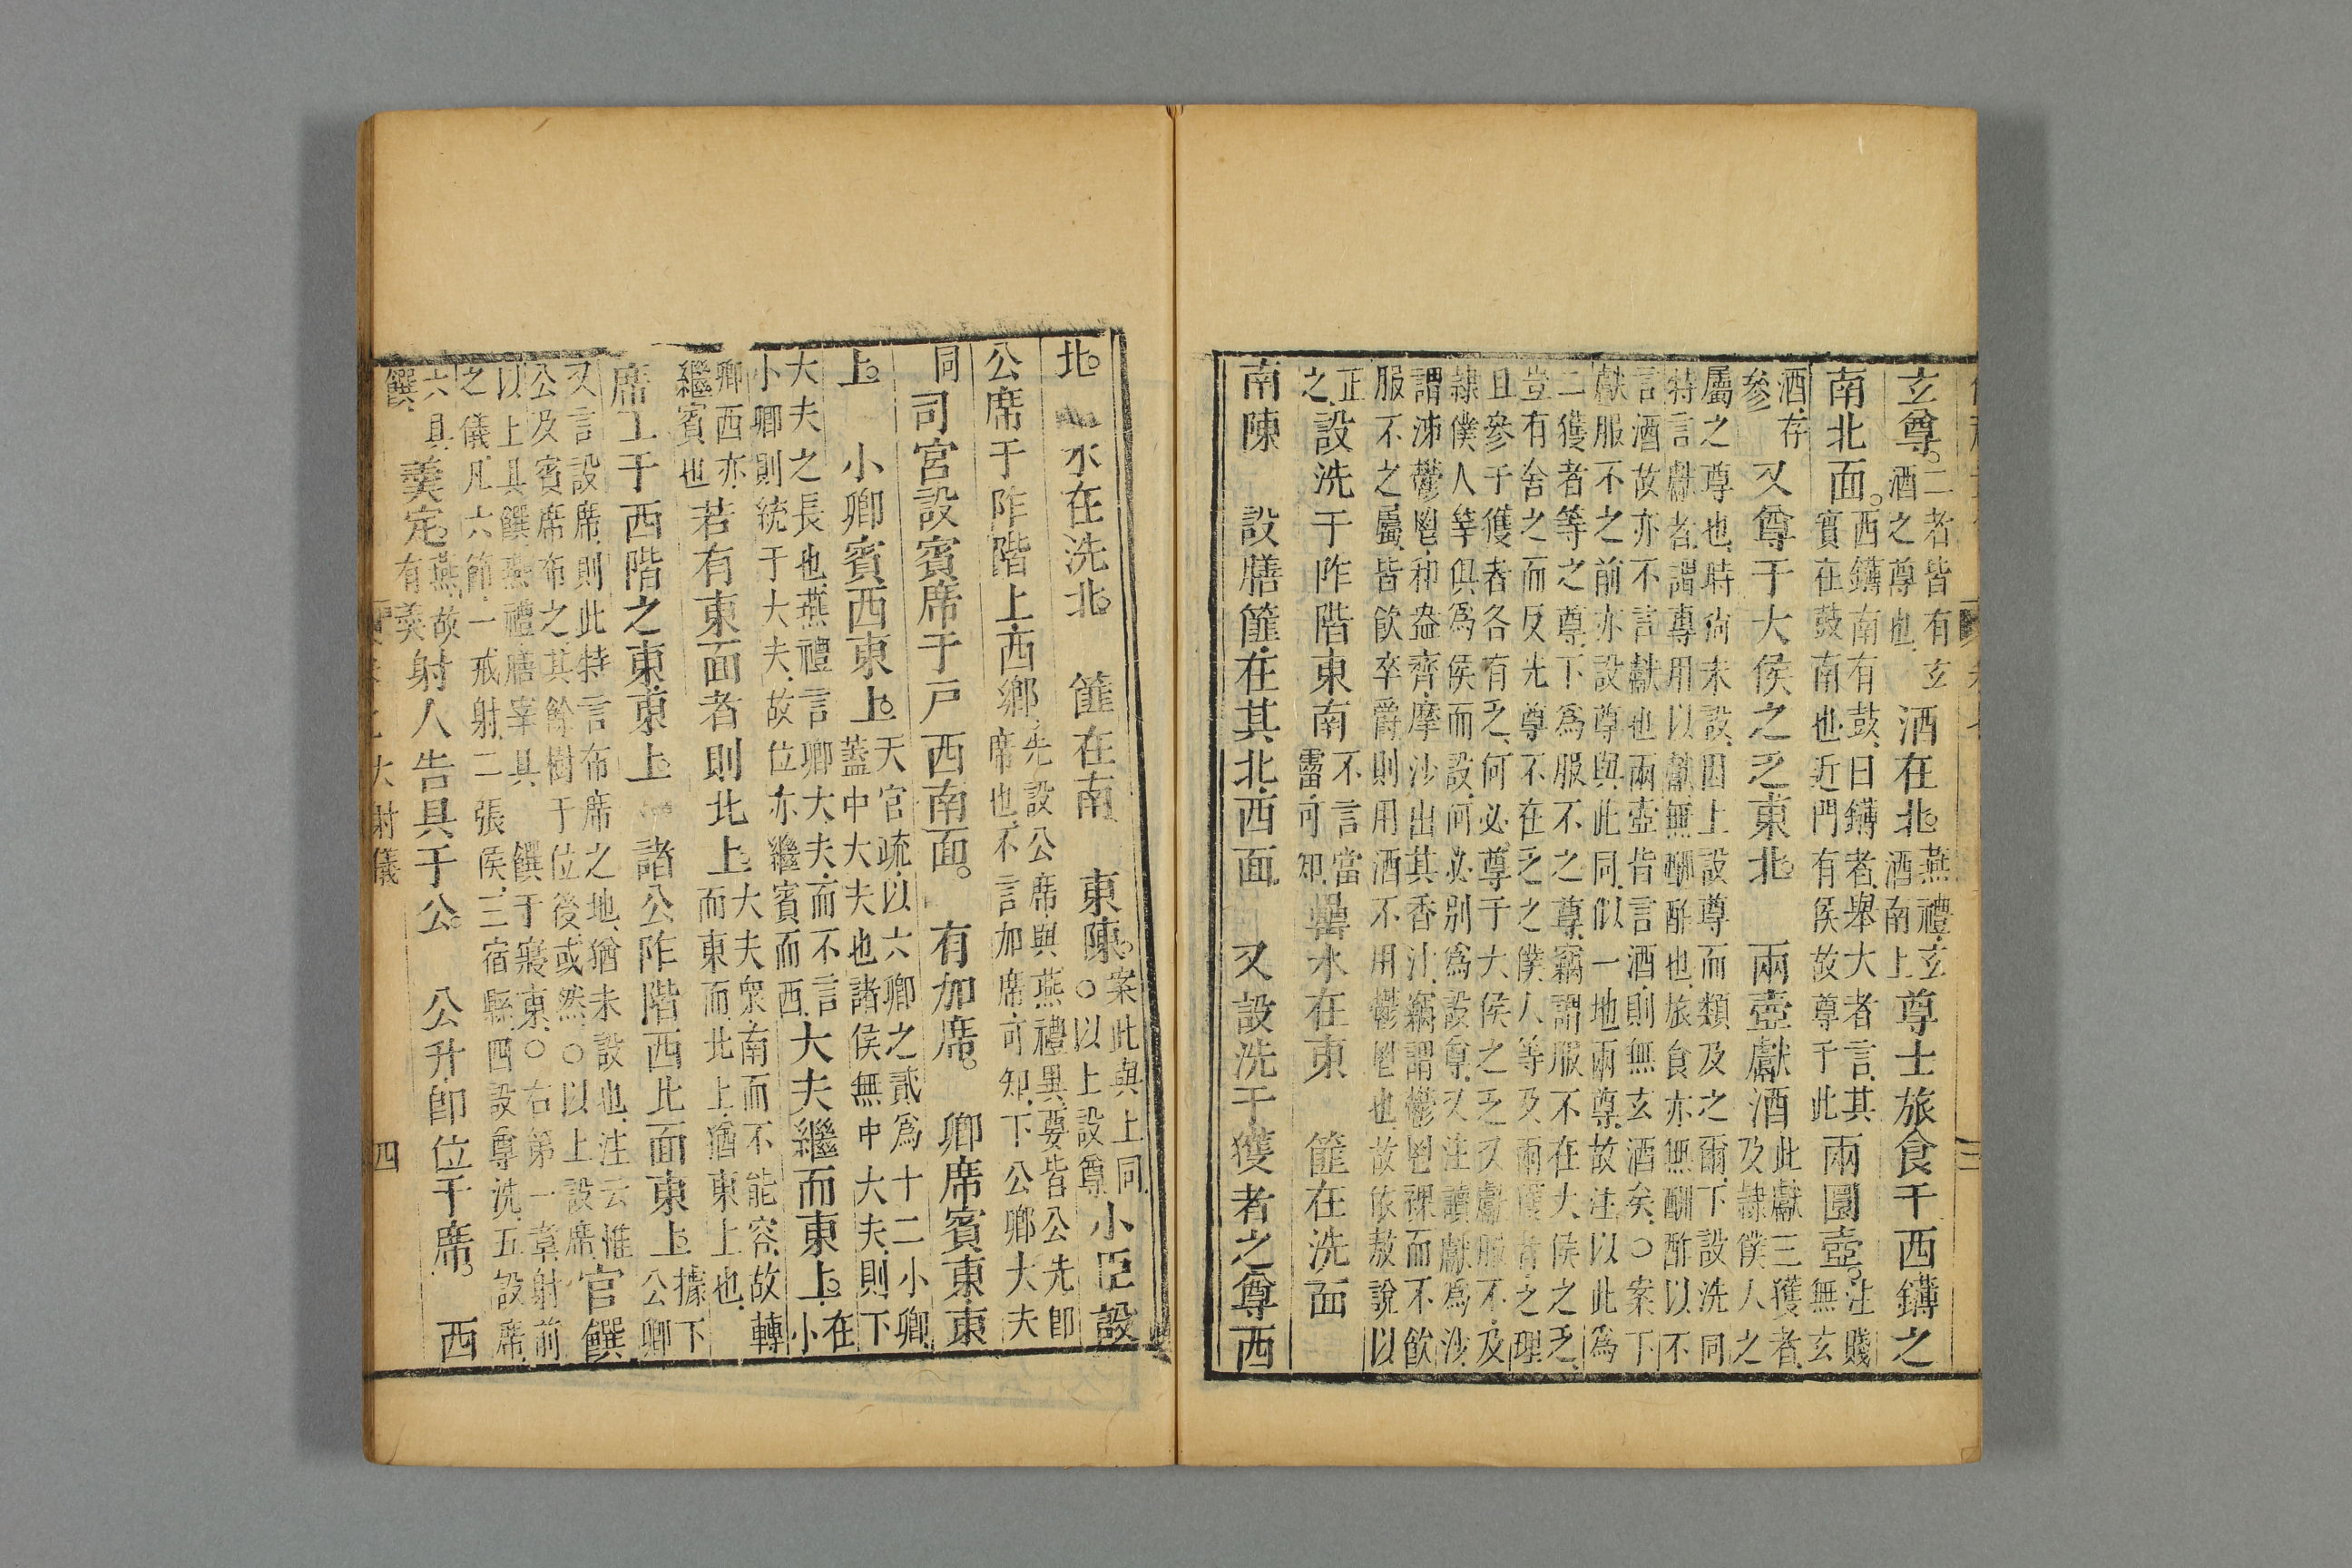 玄尊。二者皆有玄酒之尊也、酒在北。燕禮、玄尊酒南上士旅食于西鑮之
南北面。西鑮南有鼓、曰鑮者、舉大者言、其實在鼓南也、近門有侯故尊于此兩圜壺。注賤無玄
酒、存參又尊于大侯之乏東北。兩壺獻酒此獻三獲者、及隸僕人之
屬之尊也、時尚未設、因上設尊而類及之爾、下設洗同
特言獻者、謂專用以獻無酬酢也、旅食亦無酬酢以不
言酒故亦不言獻也兩壺皆言酒、則無玄酒矣、○案下
獻服不之前亦設尊與此同、似一地兩尊、故注以此為
二獲者等之尊、下為服不之尊、竊謂服不在大侯之乏、
豈有舍之而反先尊不在乏之僕人等及兩獲者之理
且參于獲者各有乏、何必尊于大侯之乏又獻服不、及
隸僕人等俱為侯而設、何必別為設尊、又注讀獻為沙、
謂沛鬱鬯、和盎齊、摩沙出其香汁、竊謂鬱鬯祼而不飲
服不之屬、皆飲卒爵、則用酒不用鬱鬯也、故依敖說以
正之、設洗于阼階東南不言當霤、可知、罍水在東 篚在洗西
南陳 設膳篚、在其北、西面、 又設洗于獲者之尊西
北。水在洗北。 篚在南 東陳。案此與上同、○以上設尊小臣設
公席于阼階上西鄉、先設公席、與燕禮異、要皆公先即席也、不言加席、可知、下公鄉大夫
同司宮設賓席于戶西南面。 有加席。 卿席賓東東
上。 小卿賓西東上。天官疏、以六卿之貳為十二小卿、蓋中大夫也諸侯無中大夫、則下
大夫之長也燕禮言卿大夫、而不言小卿則統于大夫、故位亦繼賓而西、大夫繼而東上。在小
卿西亦繼賓也若有東面者則北上。大夫眾、南而不能容、故轉而東而北上、猶東上也、
席工于西階之東東上。諸公阼階西北面東上。據下公卿
又言設席、則此特言布席之地、猶未設也、注云惟
公及賓席布之、其餘樹于位後、或然、○以上設席、官饌
以上具饌燕禮膳宰具饌于寢東、○右第一章射前
之儀、凡六節、一戒射、二張侯、三宿縣、四設尊洗、五設席、
六具饌、羹定。燕、故有羹射人告具于公。 公升、即位于席。 西
大射儀
四